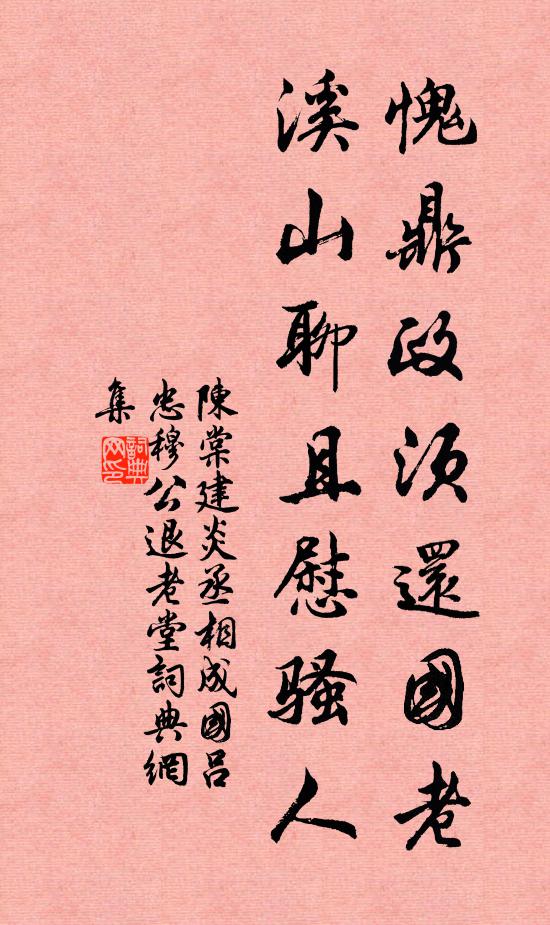 愧鼎政須還國老
溪山聊且慰騷人
陳棠建炎丞相成國呂
忠穆公退老堂詞典網
集
詞典
网印